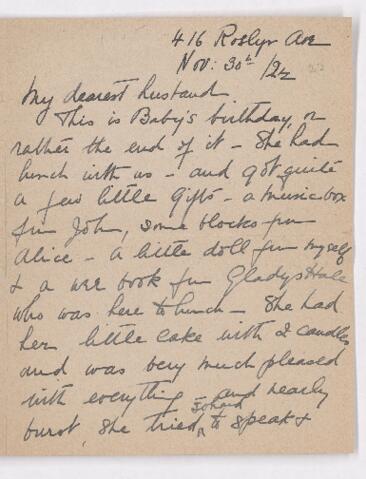 416 Roslyn Ave
Nov: 30th /22 22
My dearest husband
This is Baby's birthday, or
rather the end of it - She had
lunch with us - and got quite
a few little gifts - a music box
fm John, some blocks fm
Alice - a little doll fm myself
& a wee book fm Gladys Hale
who was here to lunch - She had
her little cake with 2 candles
and was very much pleased
with everything and nearly
burst, she tried so hard to speak &